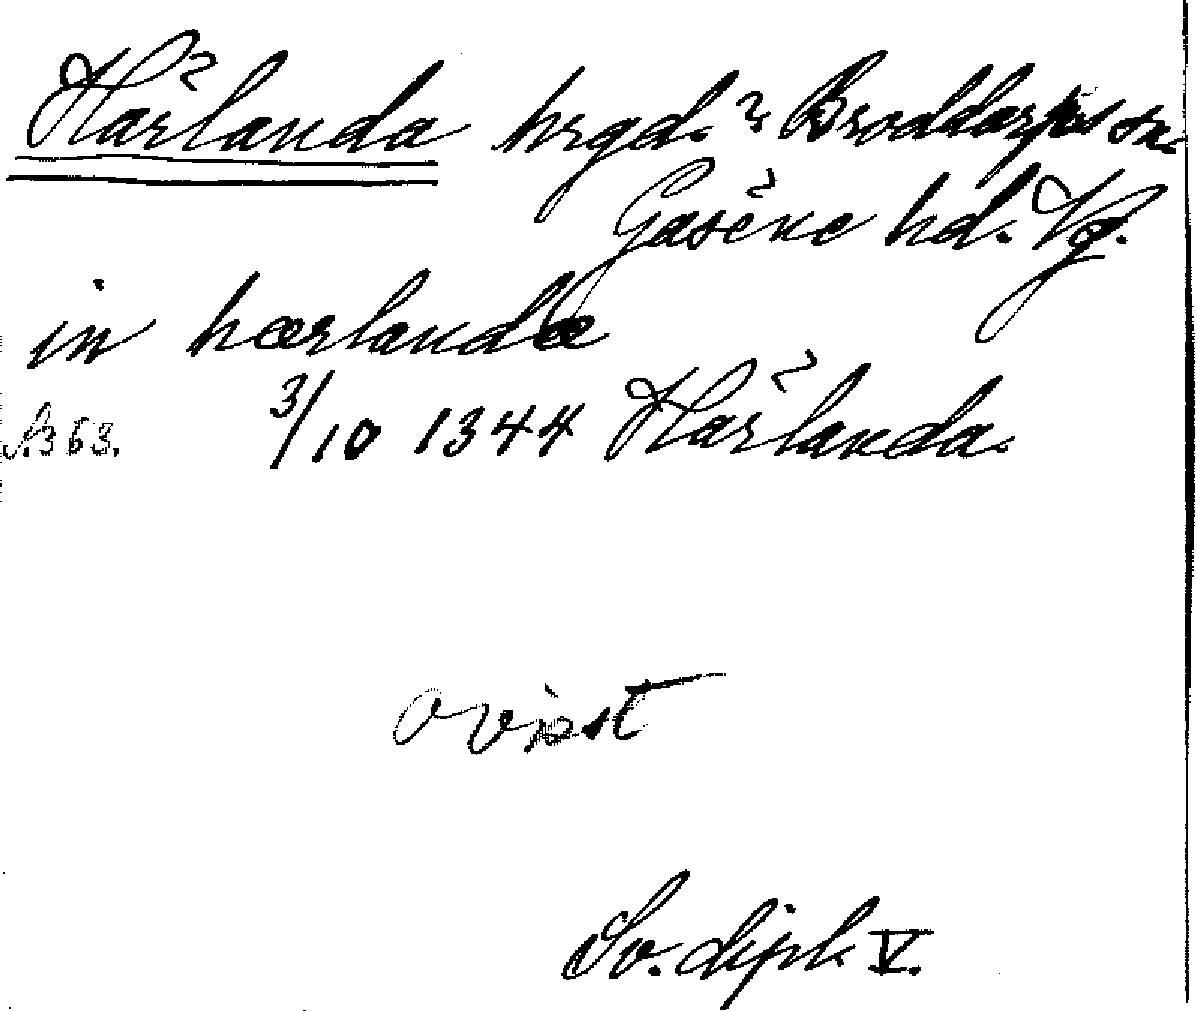 Härlanda hrgd. ? Broddarps sn.
Gäsene hd. Vg.
in hærlandæ
S. 363. 3/10 1344 Härlanda.
ovisst
Sv. dipl. V.